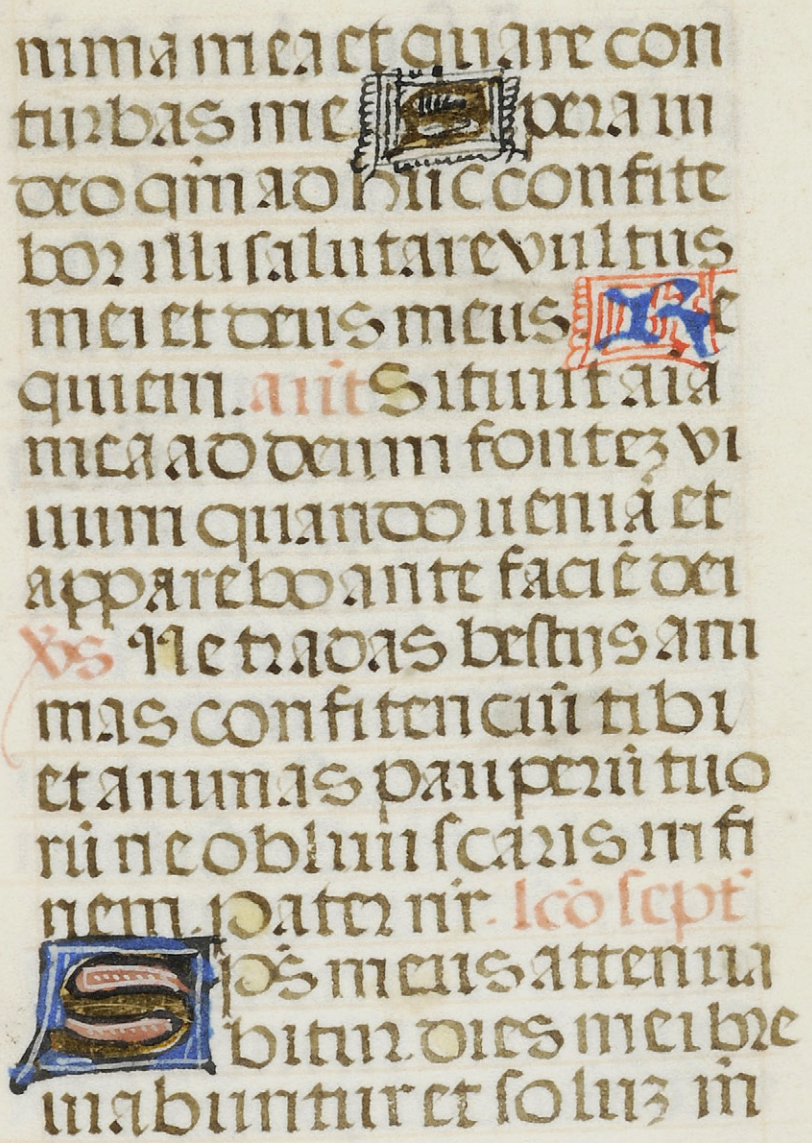 nima mea et quare con
turbas me Spera in
deo qm̄ ad huc confite
bor illi salutare vultus
mei et deus meus. Re
quiem. ant̄ Sitiuit aīa
mea ad deum fontez vi
uum quando ueniā et
apparebo ante faciē dei
v̄s Ne tradas bestijs ani
mas confitenciū tibi
et animas pauperū tuo
rū ne obliuiscaris in fi
nem. Pater nr̄. lcō sept̄
Sps̄ meus attenua
bitur dies mei bre
uiabuntur et soluz m̄